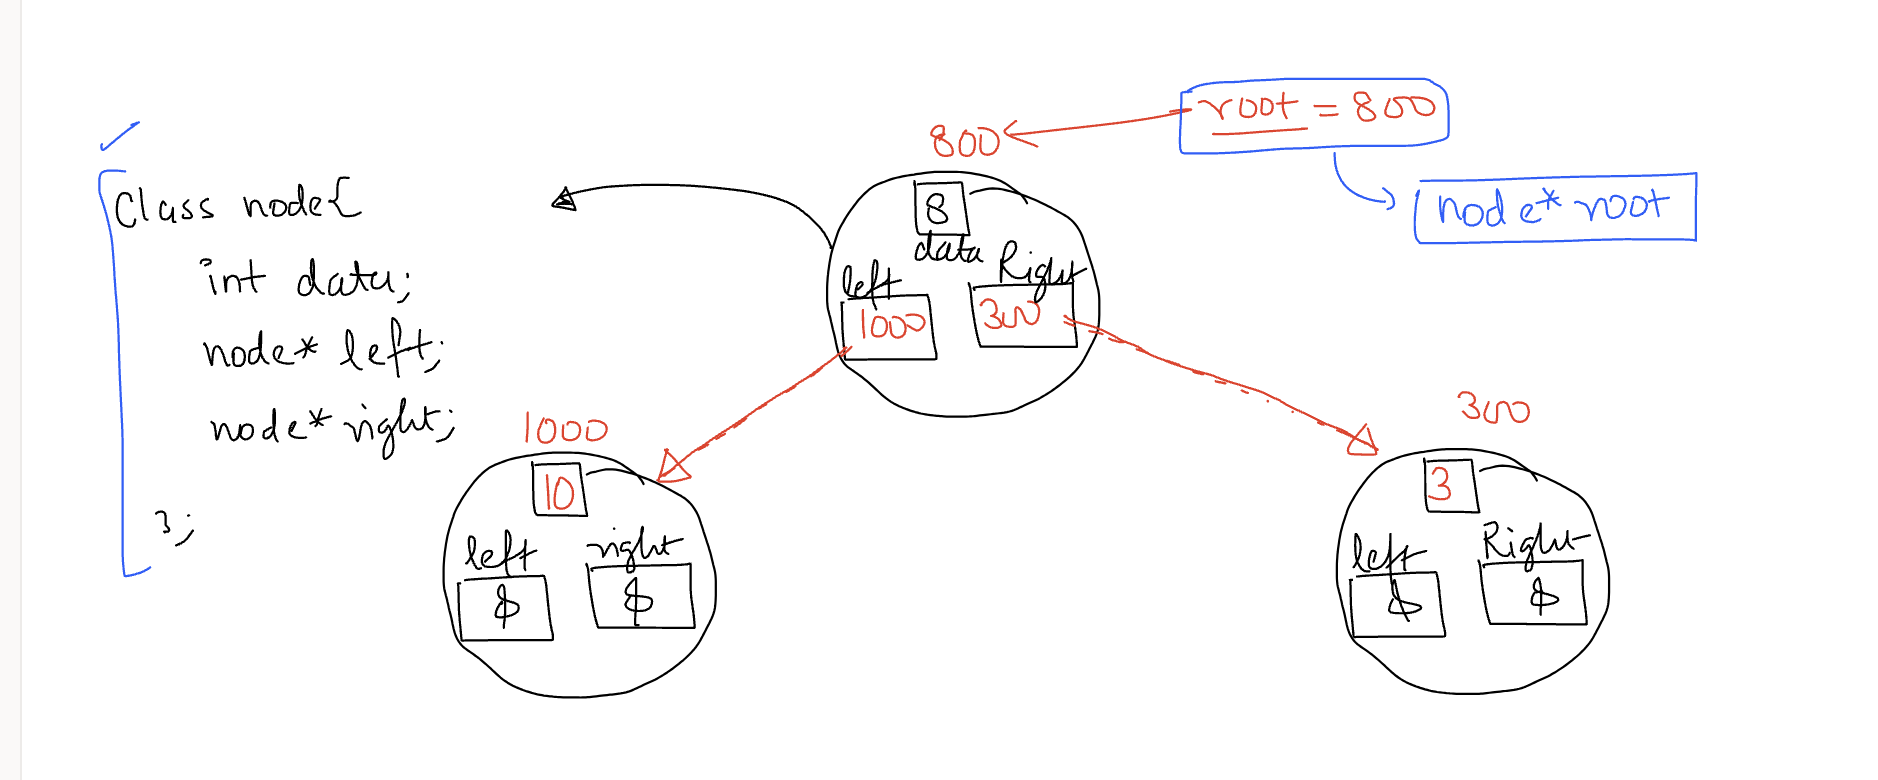 Class node{
int data;
node* left;
node* right;
};
root = 800
node* root
800
8
data
left Right
1000 300
1000
10
left right
$ $
300
3
left Right
$ $